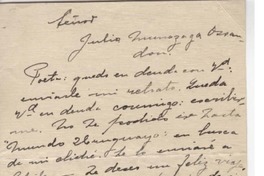 Señor
Julio Munizaga Ossan-
don.
Poeta: quedo en deuda con Ud.
enviarle mi retrato. Queda
Ud. en deuda conmigo: escribir-
me. No he podido ir hasta
"Mundo Uruguayo" en busca
de mi cliché. Se lo enviaré a
Le deseo un feliz viaje